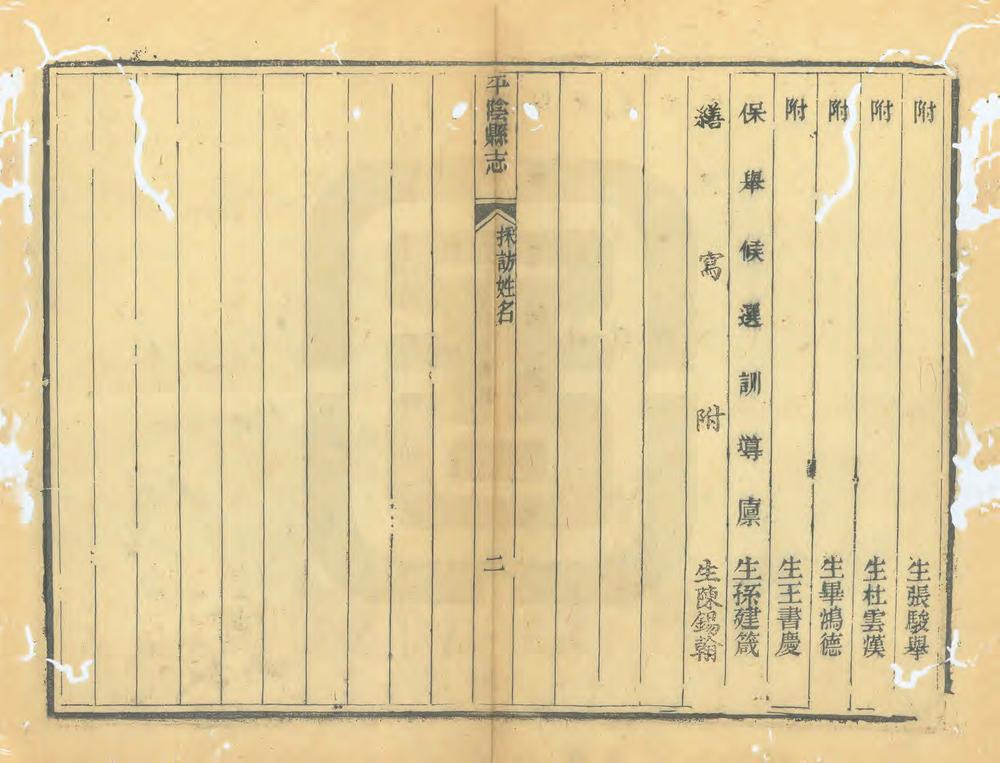 附生張駿舉
附生杜雲漢
附生畢鴻德
附生王書慶
保舉候選訓導廩生孫建箴
繕寫附生陳錫翰
平陰縣志
採訪姓名
二